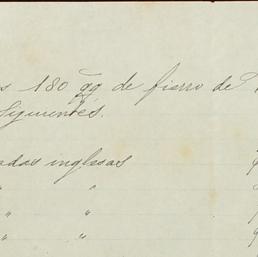 s 180 qq de fierro de
Siguientes.
adas inglesas
" "
" "
" "